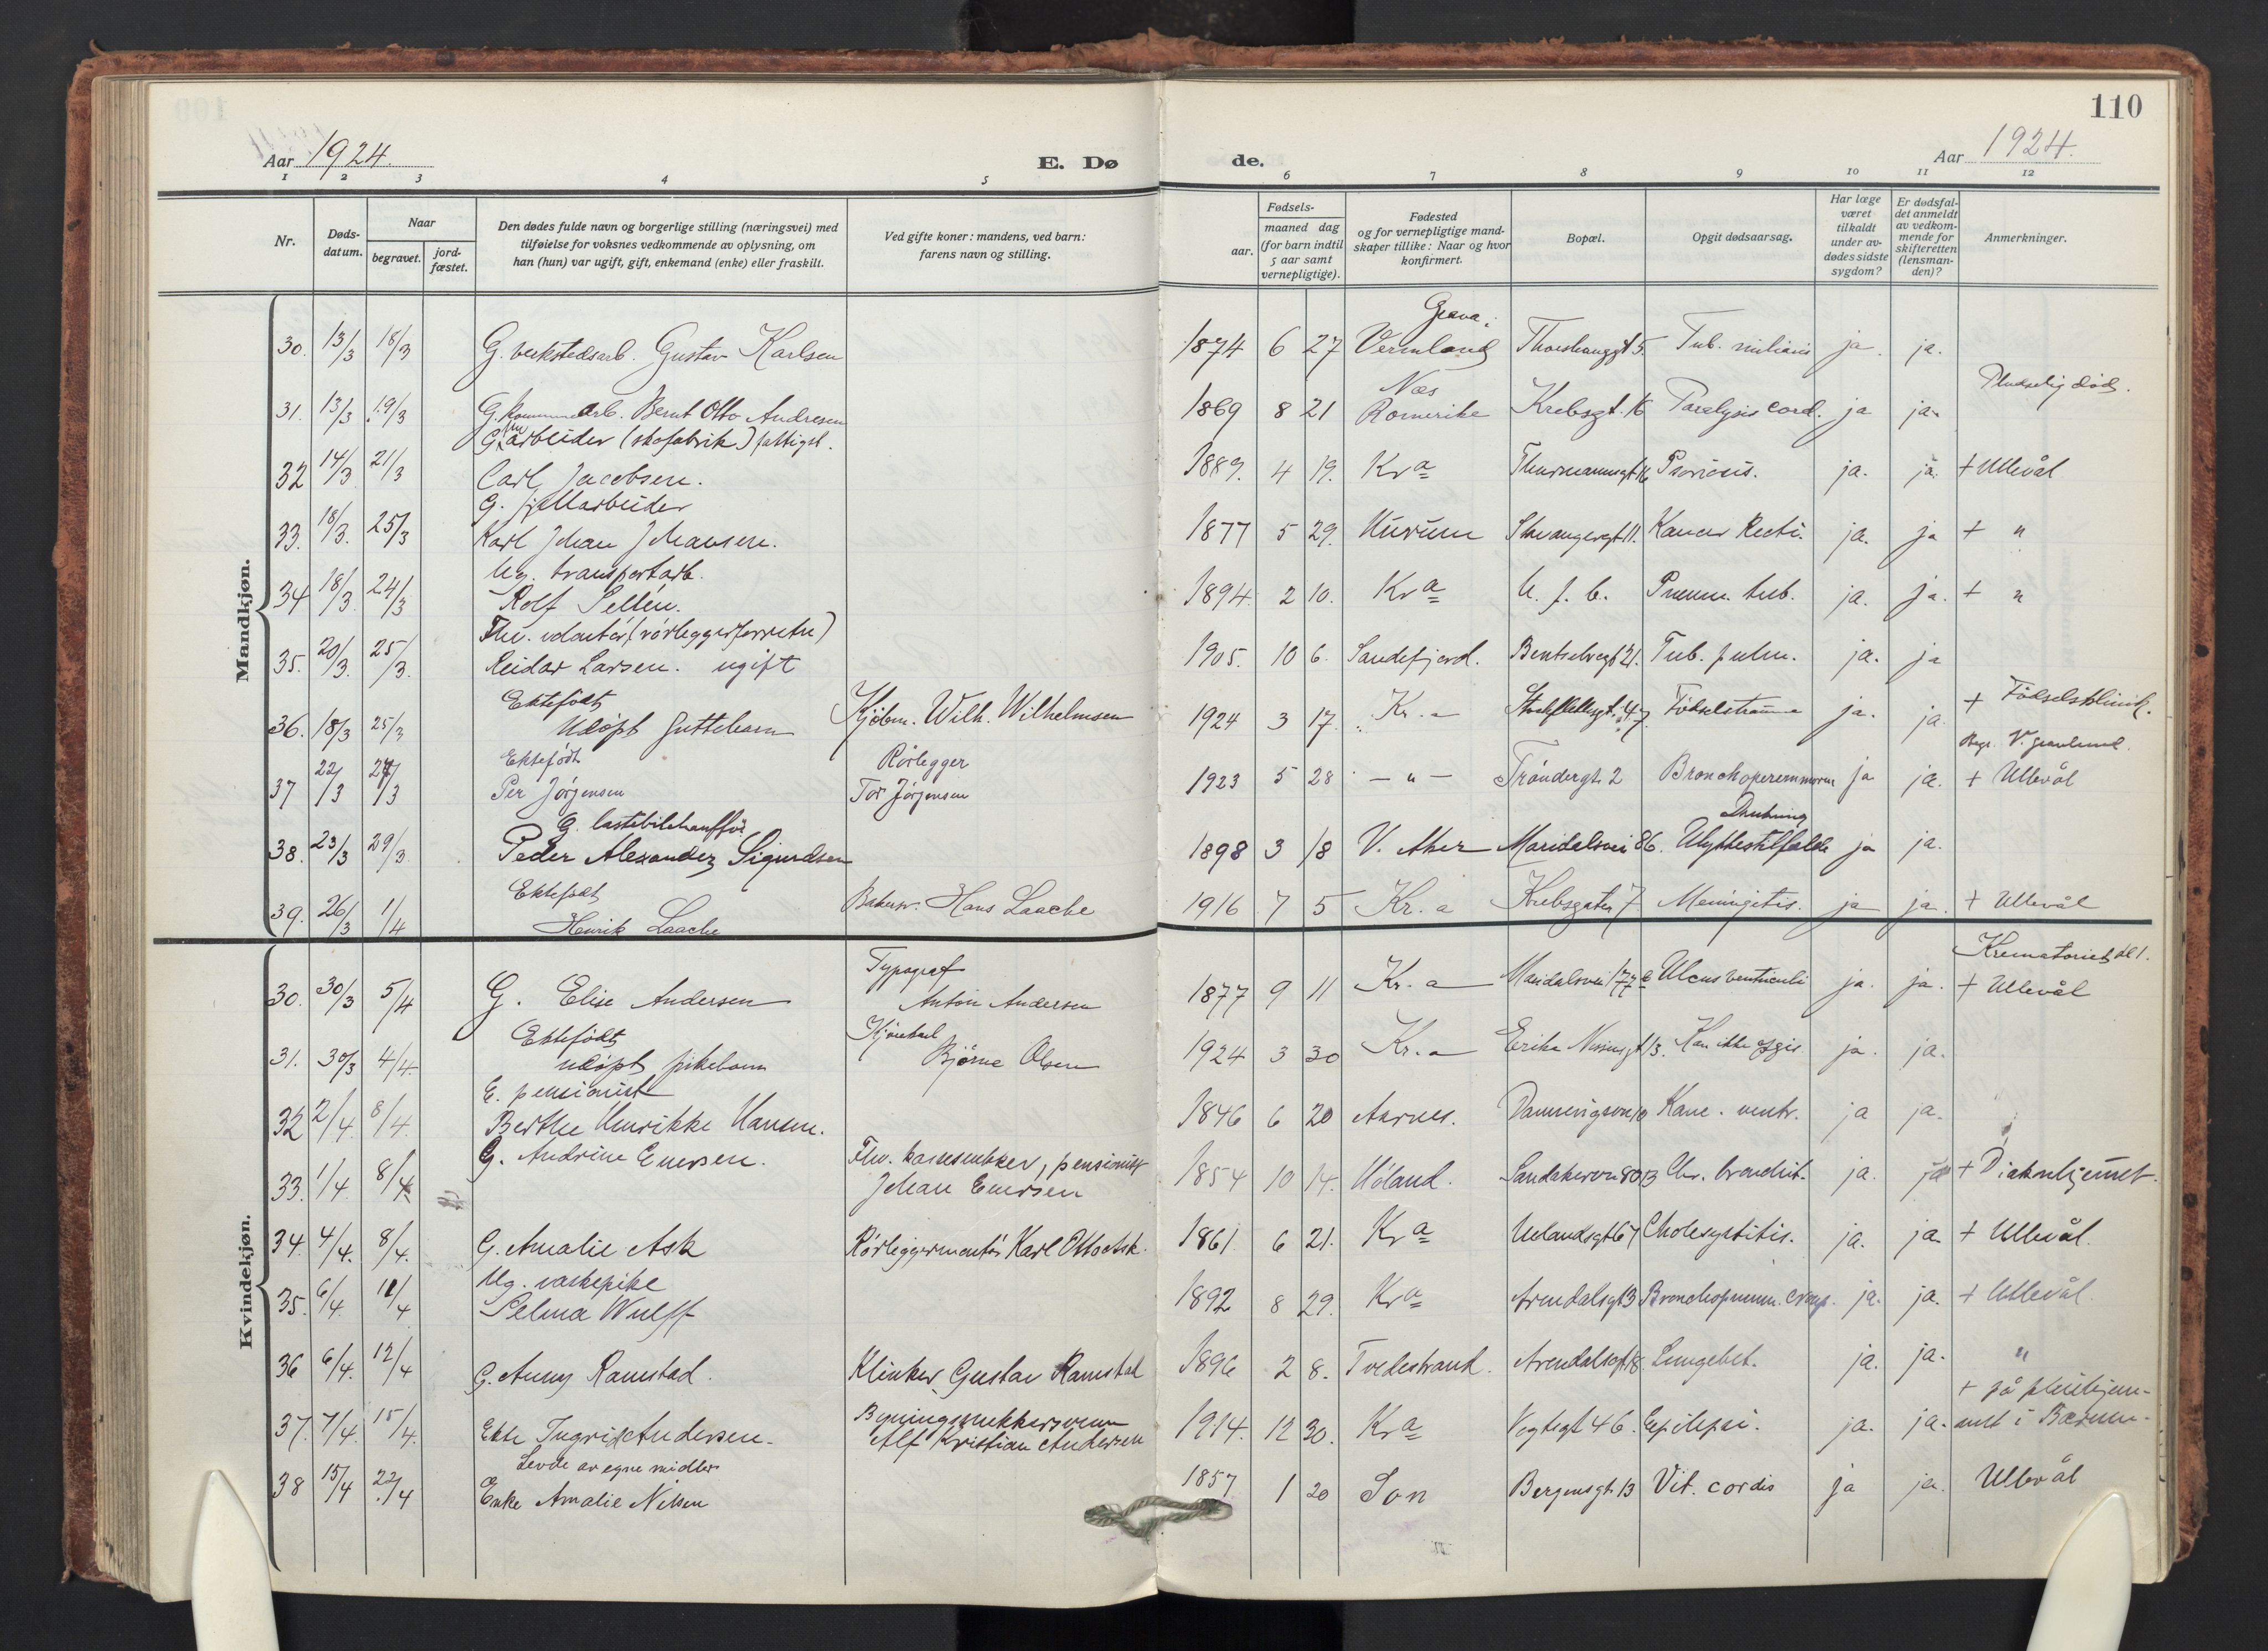 110
Aar 1924. E. Døde. Aar 1924.
1 2 3 4 5 6 7 8 9 10 11 12
Nr.
Døds-
datum.
Naar
begravet.
jord-
fæstet.
Den dødes fulde navn og borgerlige stilling (næringsvei) med
tilføielse for voksnes vedkommende av oplysning, om
han (hun) var ugift, gift, enkemand (enke) eller fraskilt.
Ved gifte koner: mandens, ved barn:
farens navn og stilling.
Fødsels-
aar.
maaned dag
(for barn indtil
5 aar samt
vernepligtige).
Fødested
og for vernepligtige mand-
skaper tillike: Naar og hvor
konfirmert.
Bopæl.
Opgit dødsaarsag.
Har læge
været
tilkaldt
under av-
dødes sidste
sygdom?
Er dødsfal-
det anmeldt
av vedkom-
mende for
skifteretten
(lensman-
den)?
Anmerkninger.
Mandkjøn.
30. 13/3 18/3 G. verkstedsarb. Gustav Karlsen 1874 6 27 Grava, Vermland 5. Tub. miliaris ja. ja.
31. 13/3 19/3 G. kommunearb. Bernt Otto Andresen 1869 8 21 Næs Romerike Krebsgt. 16 Paralysis cord. ja ja. Pludselig død.
G. arbeider (skofabrik) fattigst.
32 14/3 21/3 Carl Jacobsen. 1889. 4 19. Kra Thurmannsgt 16 Psoriasis. ja. ja. + Ullevål
G. fjellarbeider
33. 18/3. 25/3 Karl Johan Johansen. 1877 5 29. Hurum Stavangergt 11. Kancer Recti. ja. ja + "
Ug. transportarb.
34 18/3 24/3 Rolf Sellén. 1894. 2 10. Kra U. f. b. Pneum. tub. ja. ja. + "
Fhv. volontør (rørleggerforretn)
35. 20/3. 25/3. Reidar Larsen. ugift 1905. 10 6. Sandefjord. Bentsebrogt 21. Tub. pulm. ja. ja
Ektefødt
36. 18/3 25/3 Udøpt guttebarn Kjøbm. Wilh. Wilhelmsen 1924 3 17. Kr.a Stockfletsgt. 47. Fødselstraume ja. ja. + Fødselsklinik.
Begr. V. gravlund.
Ektefødt Rørlegger
37 22/3 27/3 Per Jørgensen Tor Jørgensen 1923 5 28 - " - Trøndergt. 2 ja ja. + Ullevål
G. lastebilchauffør Drukning
38. 23/3 29/3 Peder Alexander Sigurdsen 1898 3 18 V. Aker Maridalsvei 86. Ulykkestilfælde ja ja.
Ektefødt
39. 26/3 1/4 Henrik Laache Bakerm. Hans Laache 1916 7 5 Kr. a Krebsgaten 7 Meningitis. ja ja. + Ullevål
Kvindekjøn.
Typograf Krematoriet
30. 30/3 5/4 G. Elise Andersen Anton Andersen 1877 9 11 Kr. a Maridalsvei 177 Ulcus ventriculi ja. ja. + Ullevål
Ektefødt Kjørekarl
31. 30/3 4/4. udøpt pikebarn Bjarne Olsen 1924 3 30 Kr. a Erika Nissensgt 13. Kan ikke opgis ja. ja.
E. pensionist
32 2/4. 8/4. Berthe Henrikke Hansen. 1846 6 20 Aarnes. Dannevigsvn 10 Kanc. ventr. ja ja.
33. 1/4. 8/4 G. Andrine Enersen. Fhv. kassesnekker, pensionist Johan Enersen 1854 10 14. Høland. Sandakerveien 80 Chr. bronchit. ja. ja + Diakonhjemmet.
34. 4/4. 8/4. G. Amalie Ask Rørleggermontør Karl Otto Ask. 1861. 6 21. Kra Uelandsgt 67 Cholecystitis. ja. ja. + Ullevål.
Ug. vaskepike
35. 6/4. 11/4 Selma Wulff 1892 8 29. Kra Arendalsgt 3 Bronchopneum. croup. ja. ja. + Ullevål.
36 6/4. 12/4 G. Anny Ramstad. Klinker Gustav Ramstad 1896 2 8. Tvedestrand. Arendalsgt 18. Lungebet. ja. ja. "
37. 7/4. 15/4. Ekte Ingrid Andersen. Bygningssnekkersvenn Alf Kristian Andersen 1914. 12 30. Kra Vogtsgt 46. Epilepsi. ja. ja. + på pleiehjem-
met i Bærum.
Levde av egne midler
38 15/4 22/4 Enke Amalie Nilsen 1857 1 20 Son Bergensgt. 13 Vit. cordis ja ja. Ullevål